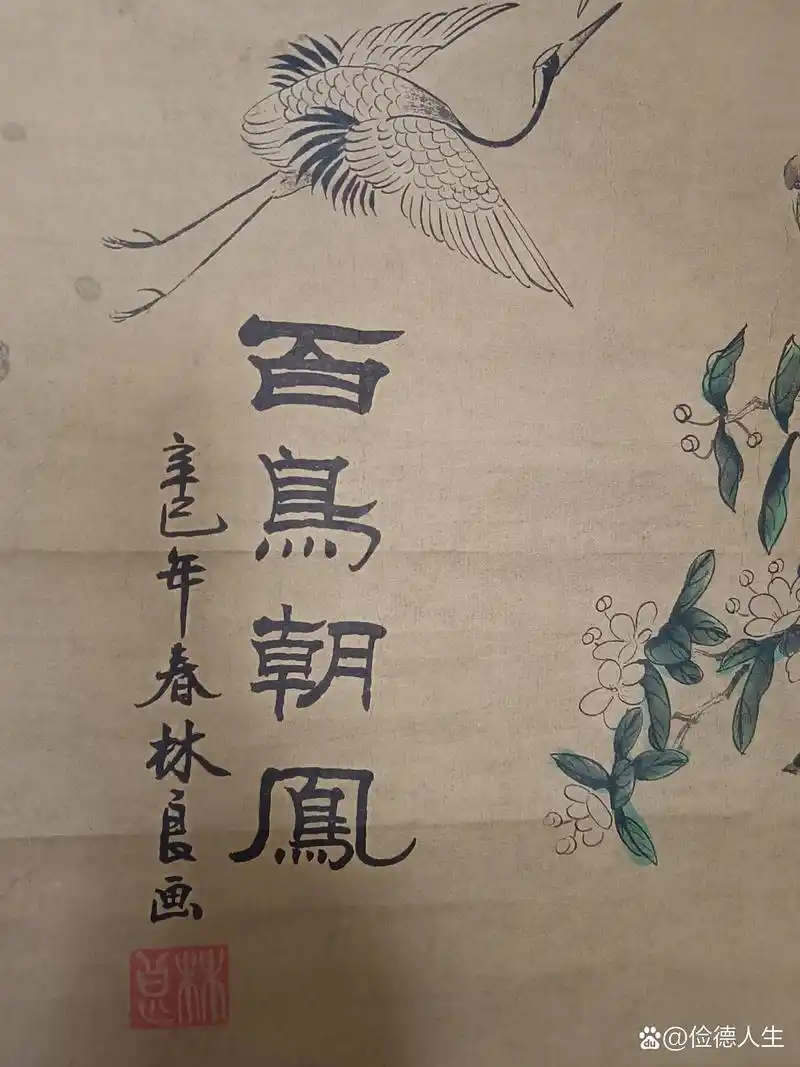 百鳥朝鳳
辛巳年春林良画
林良
@俭德人生